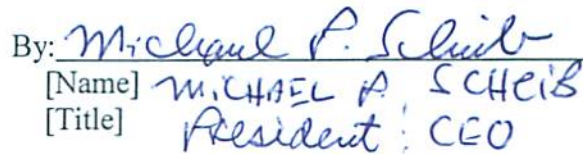 By: Michael P. Scheib
[Name] MICHAEL P. SCHEIB
[Title] President : CEO